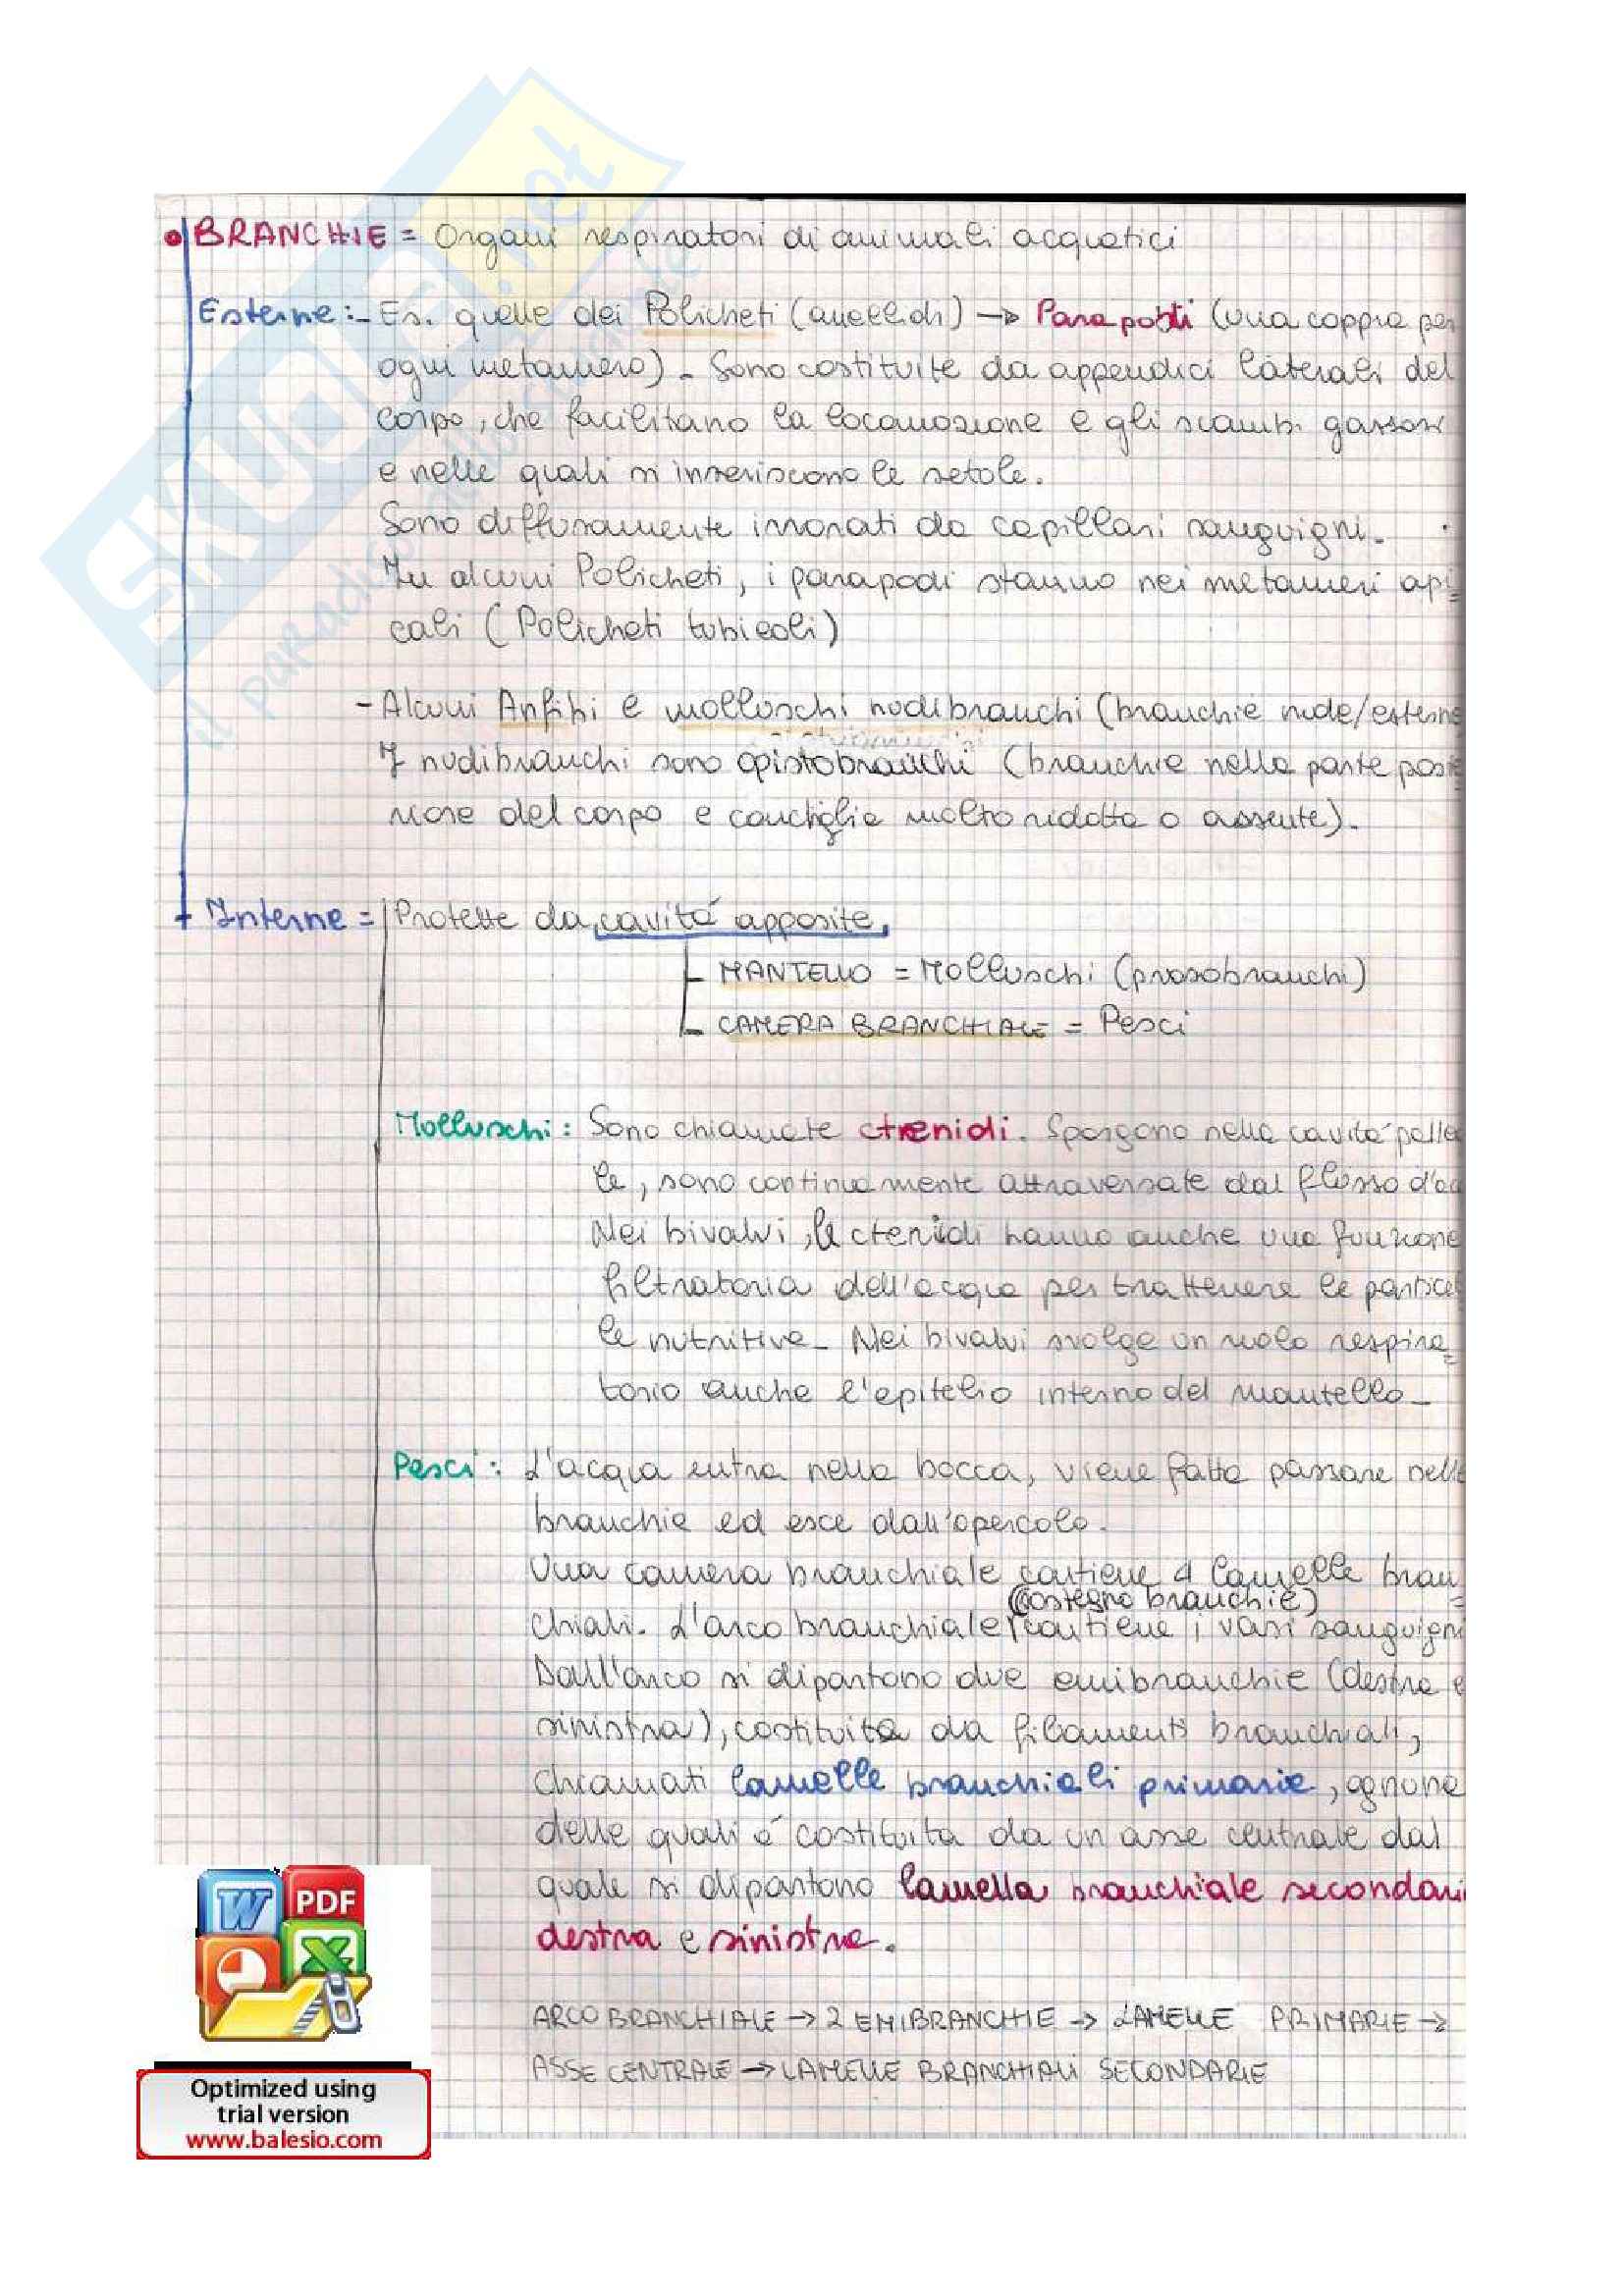 SKUOLA.net
il paradiso dello studente
• BRANCHIE = Organi respiratori di animali acquatici
Esterne: - Es. quelle dei Policheti (anellidi) → Parapodi (una coppia per
ogni metamero). Sono costituite da appendici laterali del
corpo, che facilitano la locomozione e gli scambi gassosi
e nelle quali si inseriscono le setole.
Sono diffusamente irrorati da capillari sanguigni.
In alcuni Policheti, i parapodi stanno nei metameri api=
cali (Policheti tubicoli)
- Alcuni Anfibi e molluschi nudibranchi (branchie nude/esterne
I nudibranchi sono opistobranchi (branchie nella parte poste
riore del corpo e conchiglia molto ridotta o assente).
Interne = Protette da cavità apposite
MANTELLO = Molluschi (prosobranchi)
CAMERA BRANCHIALE = Pesci
Molluschi: Sono chiamate ctenidi. Sporgono nella cavità pallea
le, sono continuamente attraversate dal flusso d'ac
Nei bivalvi, le ctenidi hanno anche una funzione
filtratoria dell'acqua per trattenere le particel
le nutritive. Nei bivalvi svolge un ruolo respira=
torio anche l'epitelio interno del mantello.
Pesci: L'acqua entra nella bocca, viene fatta passare nelle
branchie ed esce dall'opercolo.
Una camera branchiale contiene 4 lamelle bran=
(sostegno branchie)
chiali. L'arco branchiale contiene i vasi sanguigni
Dall'arco si dipartono due emibranchie (destra e
sinistra), costituita da filamenti branchiali,
chiamati lamelle branchiali primarie, ognuna
delle quali è costituita da un asse centrale dal
quale si dipartono lamella branchiale secondari
destra e sinistra.
ARCO BRANCHIALE → 2 EMIBRANCHIE → LAMELLE PRIMARIE →
ASSE CENTRALE → LAMELLE BRANCHIALI SECONDARIE
W PDF
X
Optimized using
trial version
www.balesio.com